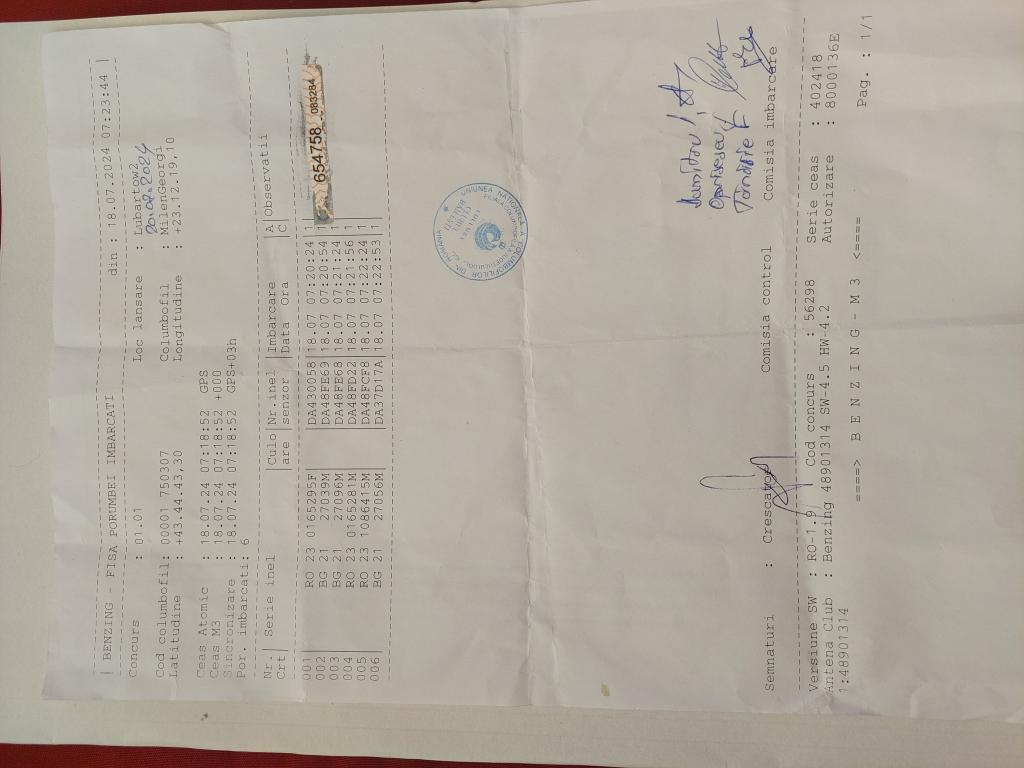 | BENZING - FISA PORUMBEI IMBARCATI din : 18.07.2024 07:23:44 |
Concurs : 01.01 Loc lansare : Lubartow2
20.07.2024
Cod columbofil: 00001 750307 Columbofil : MilenGeorgi
Latitudine : +43.44.43,30 Longitudine : +23.12.19,10
Ceas Atomic : 18.07.24 07:18:52 GPS
Ceas M3 : 18.07.24 07:18:52 +000
Sincronizare : 18.07.24 07:18:52 GPS+03h
Por. imbarcati: 6
Nr.| Serie inel |Culo|Nr.inel |Imbarcare A|Observatii
Crt| |are |senzor |Data Ora C|
001 RO 23 0165295F| |DA430058|18.07 07:20:24 1|
002 BG 21 27039M |DA48FE69|18.07 07:20:54 1|
003 BG 21 27096M |DA48FE68|18.07 07:21:24 1|
004 RO 23 0165281M |DA48FD22|18.07 07:21:56 1
005 RO 23 1086413M |DA48FCF8|18.07 07:22:24 1
006 BG 21 27058M |DA37D17A|18.07 07:22:53 1|
654758 083284
UNIUNEA NATIONALA A COLUMBOFILILOR DIN ROMANIA
Semnaturi : Crescator Comisia control Comisia imbarcare
Versiune SW : RO-1.9 Cod concurs : 56298 Serie ceas : 402418
Antena club : Benzing 48901314 SW-4.5 HW-4.2 Autorizare : 8000136E
1:48901314
====> B E N Z I N G - M 3 <====
Pag. : 1/1